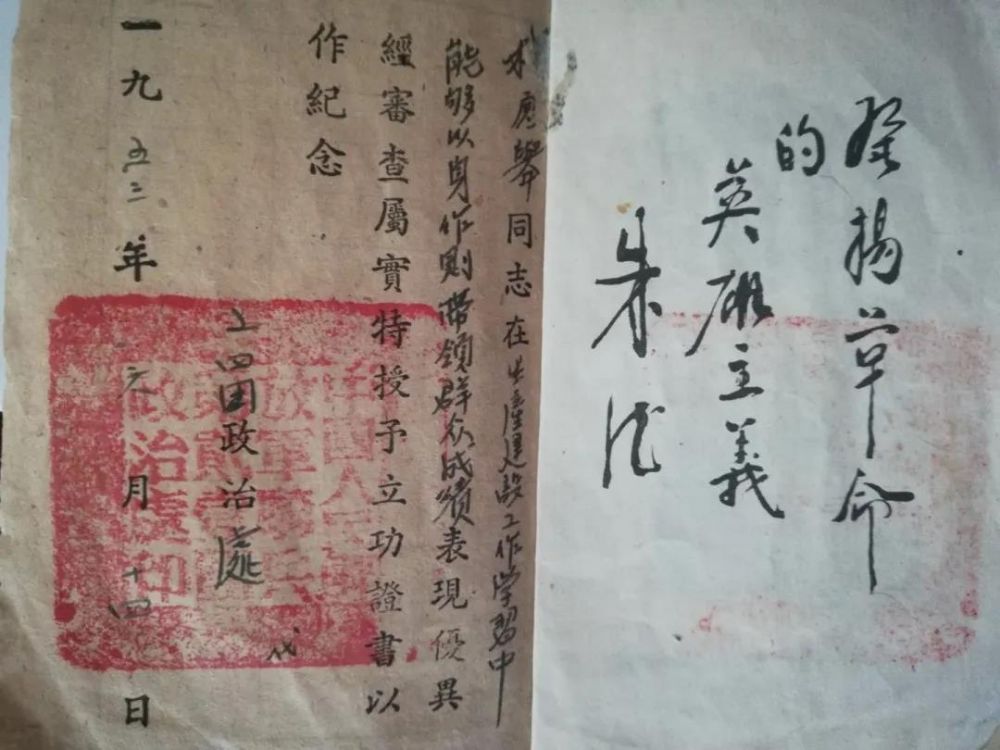 發揚革命
的
英雄主義
朱德
應舉同志在生產建設工作学習中
能够以身作則帶領群众成績表現優異
經審查屬實特授予立功證書以
作紀念
工四团政治處
一九五三年元月十四日
政治處印